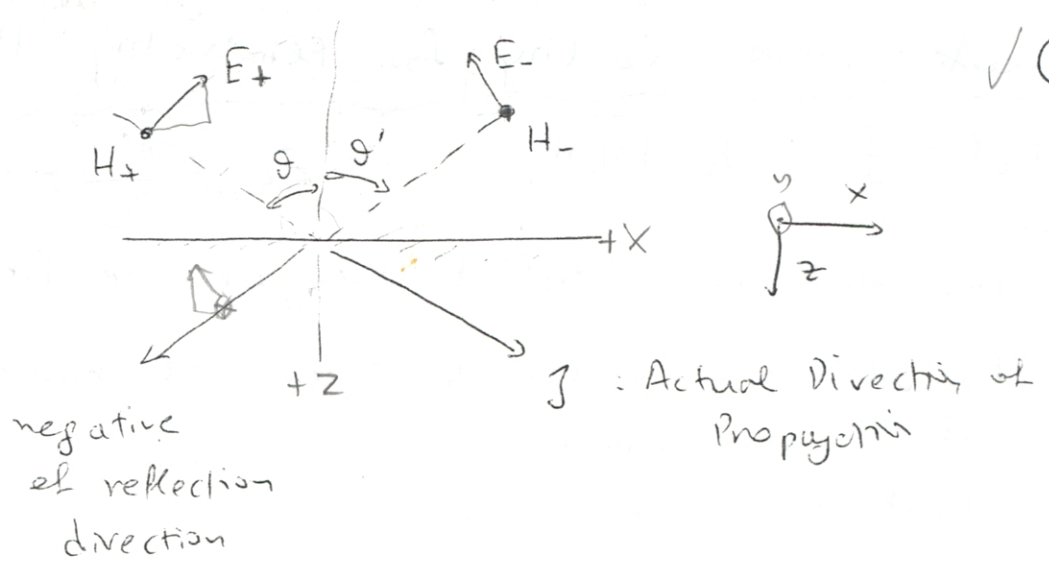 E+
E-
H+
H-
ϑ ϑ'
+X
y
x
z
+Z
: Actual Direction of
Propagation
negative
of reflection
direction